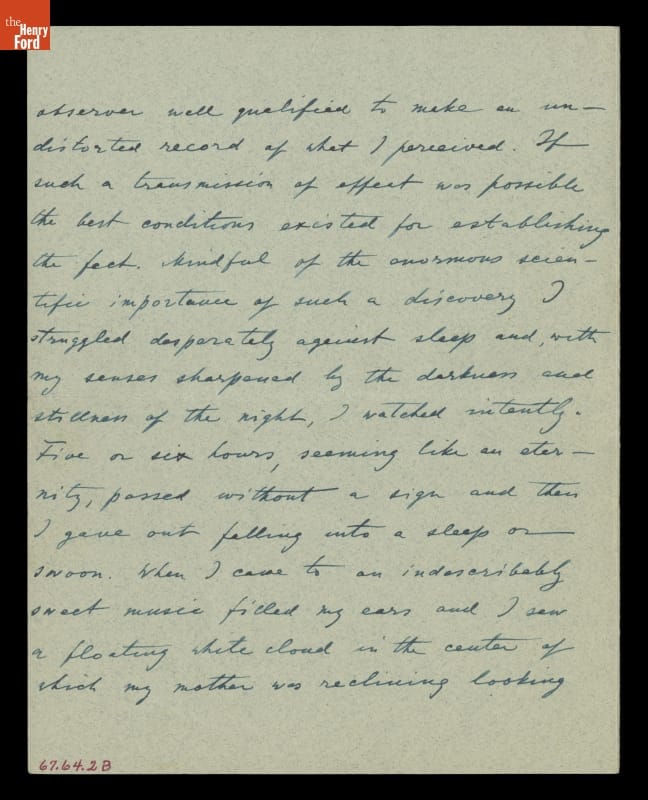 the
Henry
Ford
observer well qualified to make an un-
distorted record of what I perceived. If
such a transmission of effect was possible
the best conditions existed for establishing
the fact. Mindful of the enormous scien-
tific importance of such a discovery I
struggled desperately against sleep and, with
my senses sharpened by the darkness and
stillness of the night, I watched intently.
Five or six hours, seeming like an eter-
nity, passed without a sign and then
I gave out falling into a sleep or
swoon. When I came to an indescribably
sweet music filled my ears and I saw
a floating white cloud in the center of
which my mother was reclining looking
67.64.2B